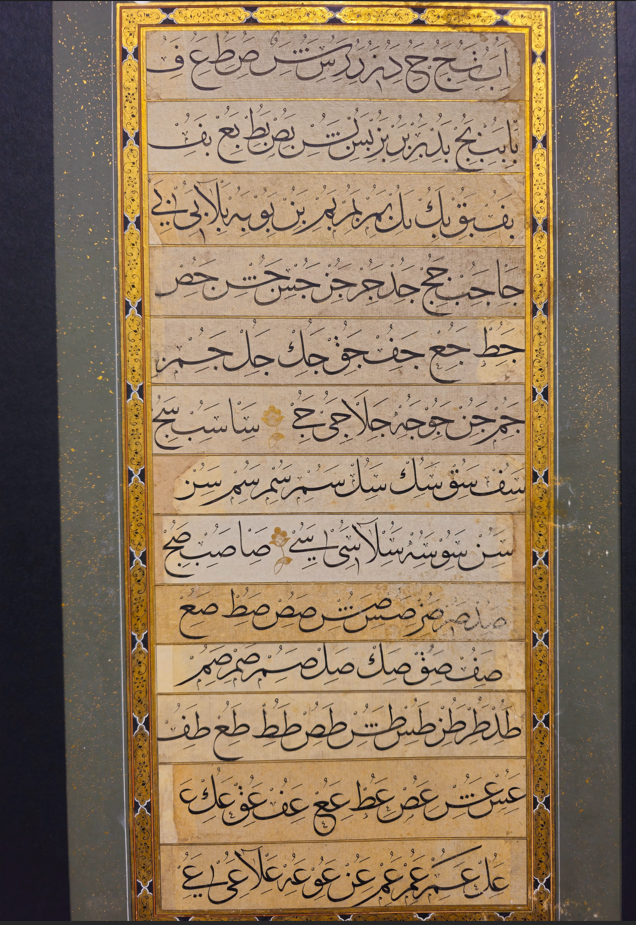 ا ب ج ح د ر س ش ص ط ع ف
با بب بج بد بر بس بش بص بط بع بف
بف بق بك بل بم بمر بم بن بو به بلا بى بے
جا جب جج جد جر جز جس جش جص
جط جع جف جق جك جل جم
جم جن جو جه جلا جى جے سا سب سج
سف سق سك سل سم سمر سم سن
سن سو سه سلا سى سے صا صب صج
صد صر صز صس صش صص صط صع
صف صق صك صل صم صمر صم
طد طر طز طس طش طص طط طع طف
عس عش عص عط عع عف عق عك
عل عم عمر عم عن عو عه علا عى عے